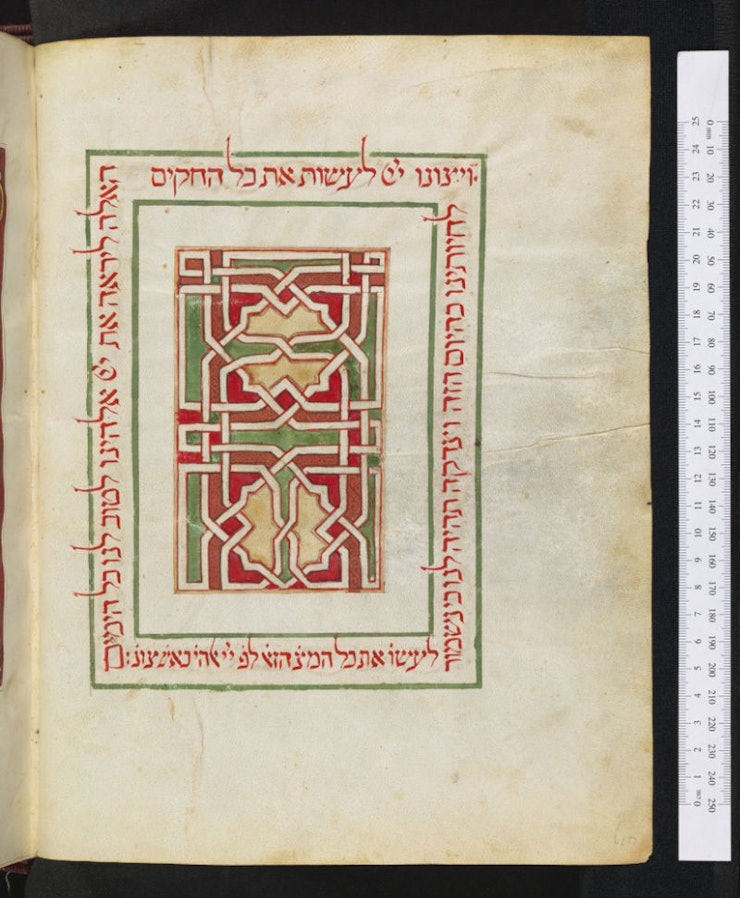 ויצונו יי לעשות את כל החקים
האלה ליראה את יי אלהינו לטוב לנו כל הימים
לחיותינו כהיום הזה וצדקה תהיה לנו כי נשמור
לעשו את כל המצ הזא לפ יי אלהי כאש צונ:
0 mm 10 20 30 40 50 60 70 80 90 100 110 120 130 140 150 160 170 180 190 200 210 220 230 240 250
25 24 23 22 21 20 19 18 17 16 15 14 13 12 11 10 9 8 7 6 5 4 3 2 1 0 cm